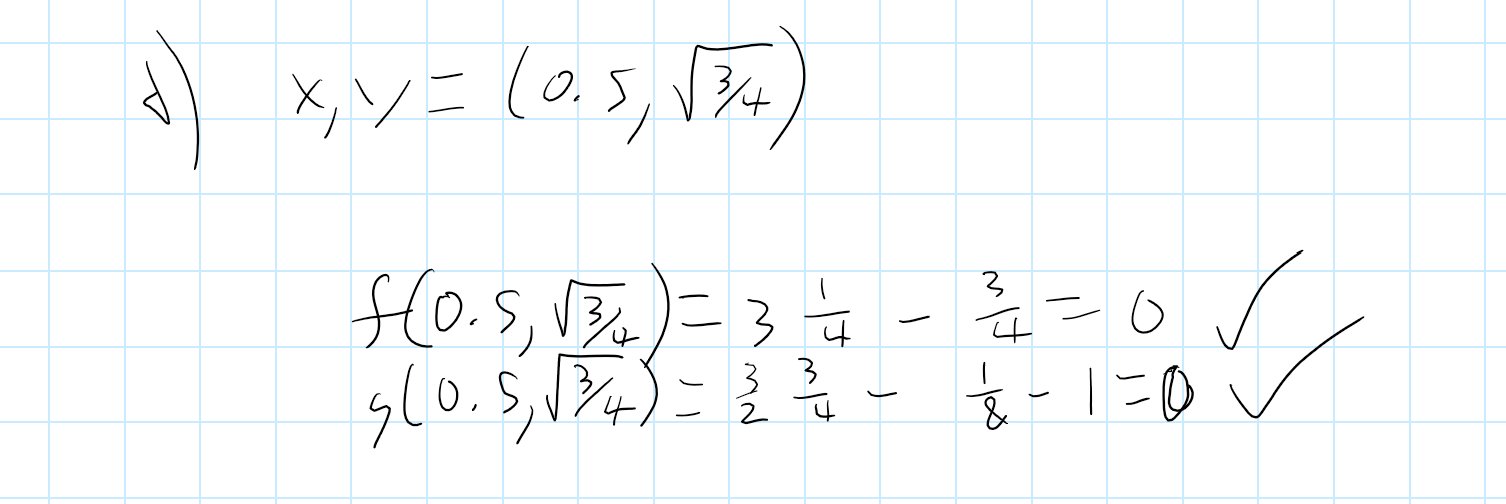 d) x, y = (0.5, √3/4)
f(0.5, √3/4) = 3 1/4 - 3/4 = 0 ✓
g(0.5, √3/4) = 3/2 3/4 - 1/8 - 1 = 0 ✓